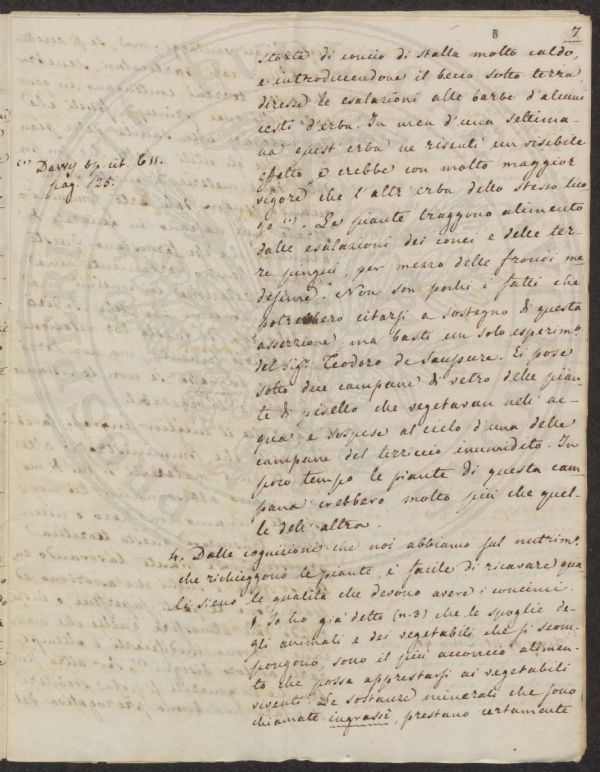 7
storta di concio di stalla molto caldo,
e introducendone il becco sotto terra
diresse le esalazioni alle barbe d'alcuni
cesti d'erba. In men d'una settima-
na quest'erba ne risentì un visibile
effetto e crebbe con molto maggior
vigore che l'altr'erba dello stesso luo-
go (1). Le piante traggono alimento
dalle esalazioni dei conci e delle ter-
re pingui, per mezzo delle frondi me
desime. Non son pochi i fatti che
potrebbero citarsi a sostegno di questa
asserzione, ma basti un solo esperim.o
del Sig.r Teodoro de Saussure. Ei pose
sotto due campane di vetro delle pian-
te di pisello che vegetavan nell'ac-
qua, e sospese al cielo d'una delle
campane del terriccio inumidito. In
poco tempo le piante di questa cam
pana crebbero molto più che quel-
le dell'altra.
4. Dalle cognizione che noi abbiamo sul nutrim.o
che richieggono le piante, è facile di ricavare qua
li sieno le qualità che devono avere i concimi.
Io ho già detto (n. 3) che le spoglie de-
gli animali e dei vegetabili che si scom-
pongono, sono il più acconcio alimen-
to che possa apprestarsi ai vegetabili
viventi. Le sostanze minerali che sono
chiamate ingrassi, prestano certamente
(1) Davvy op. cit. T II.
pag. 126.